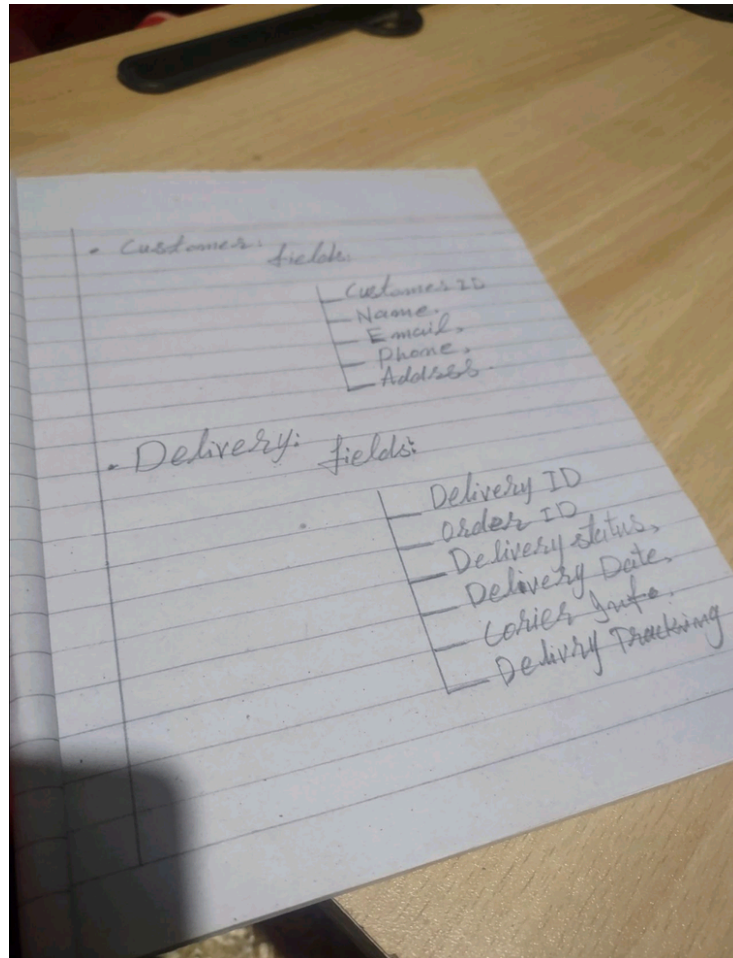 • Customer:
fields:
Customer ID
Name.
Email,
Phone,
Address.
• Delivery: fields:
Delivery ID
Order ID
Delivery status,
Delivery Date,
Corier Info.
Delivry Tracking